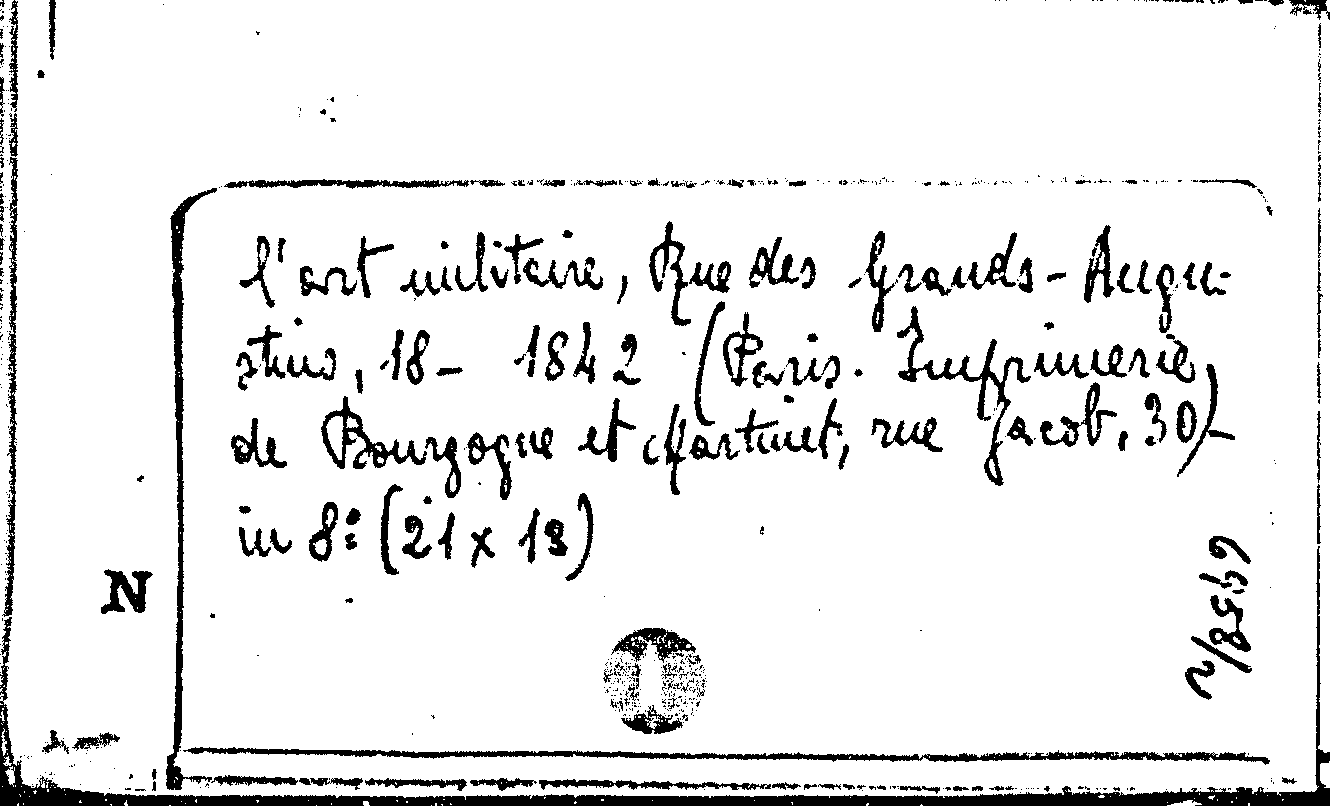 l'art militaire, Rue des Grands-Augu-
stins, 18- 1842 (Paris. Imprimerie
de Bourgogne et Martinet, rue Jacob, 30)-
in 8º (21 x 13)
N